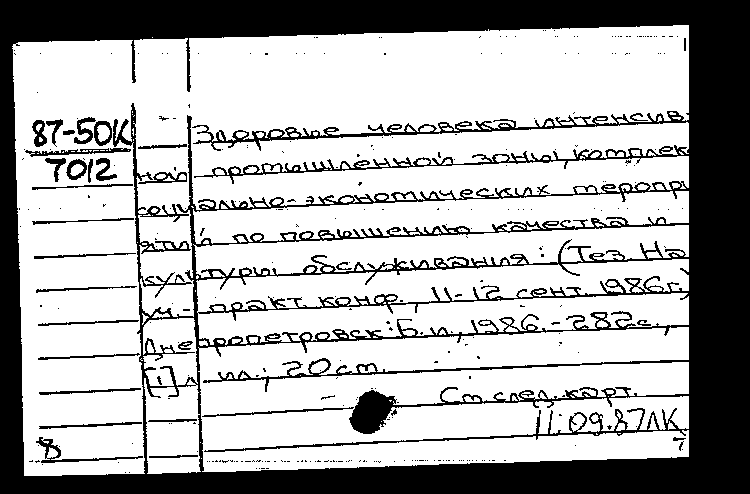 87-50К
7012
Здоровье человека интенсив-
ной промышленной зоны, комплекс
социально-экономических меропри
ятий по повышению качества и
культуры обслуживания: (Тез. На
уч.- практ. конф., 11-12 сент. 1986г.)
Днепропетровск: Б.и., 1986.-282с.,
[1] л ил.; 20 см.
См след. карт.
11.09.87ЛК
8